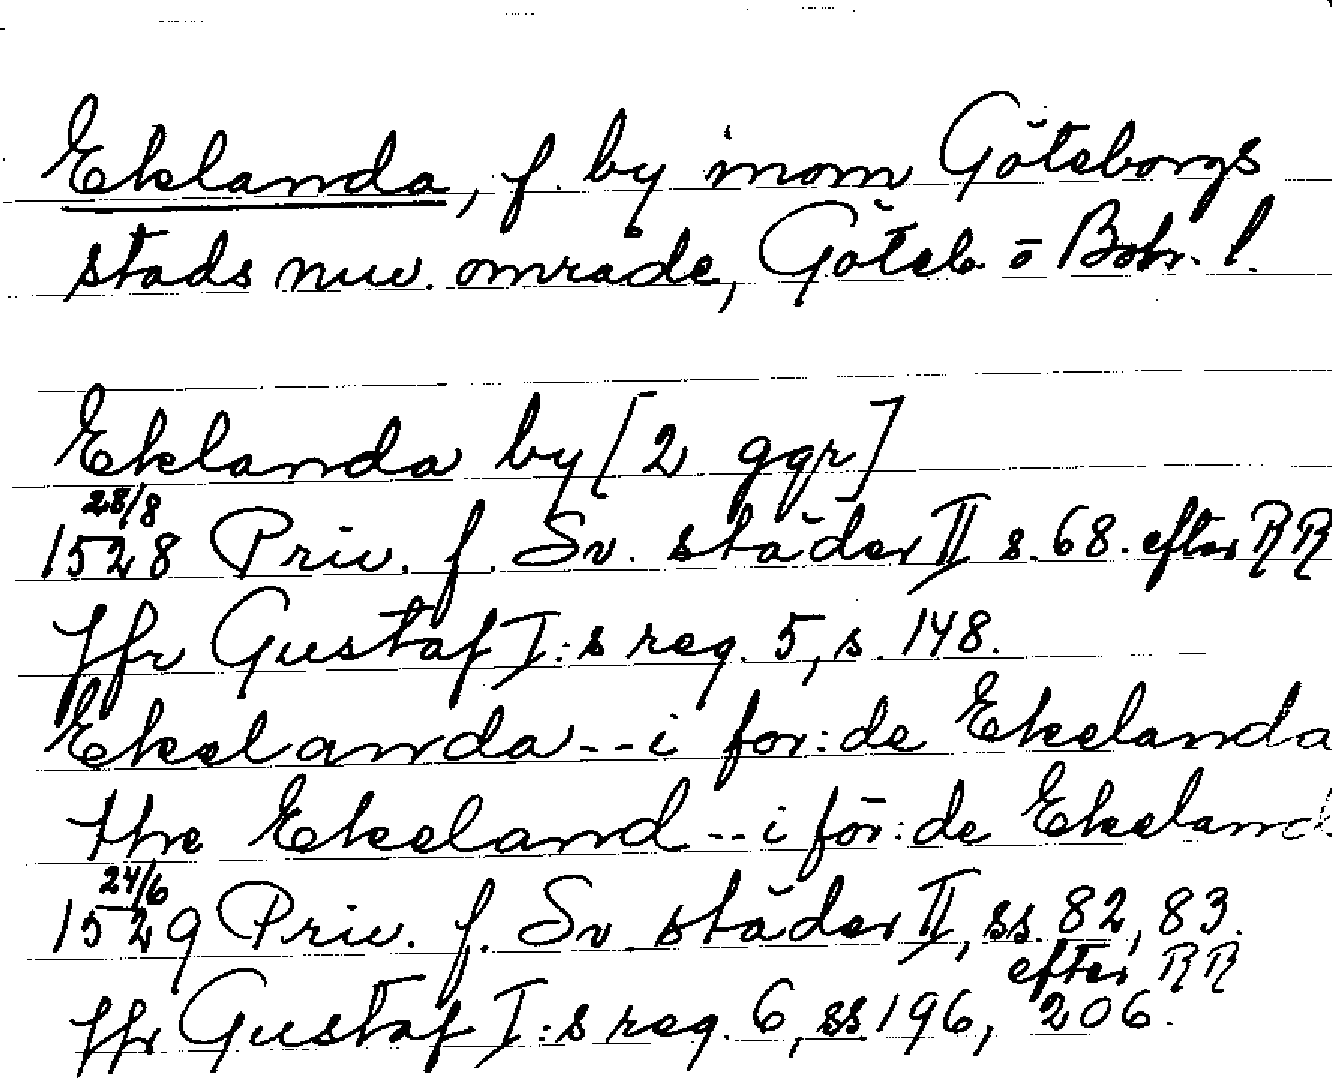 Eklanda, f. by inom Göteborgs
stads nuv. område, Göteb. o Boh. l.
Eklanda by [2 ggr]
28/8
1528 Priv. f. Sv. städer II s. 68. efter RR
Jfr Gustaf I:s reg. 5, s. 148.
Ekelanda -- i for:de Ekelanda
thre Ekeland -- i för:de Ekeland
24/6
1529 Priv. f. Sv. städer II, ss. 82, 83.
efter RR
Jfr Gustaf I:s reg. 6, ss 196, 206.